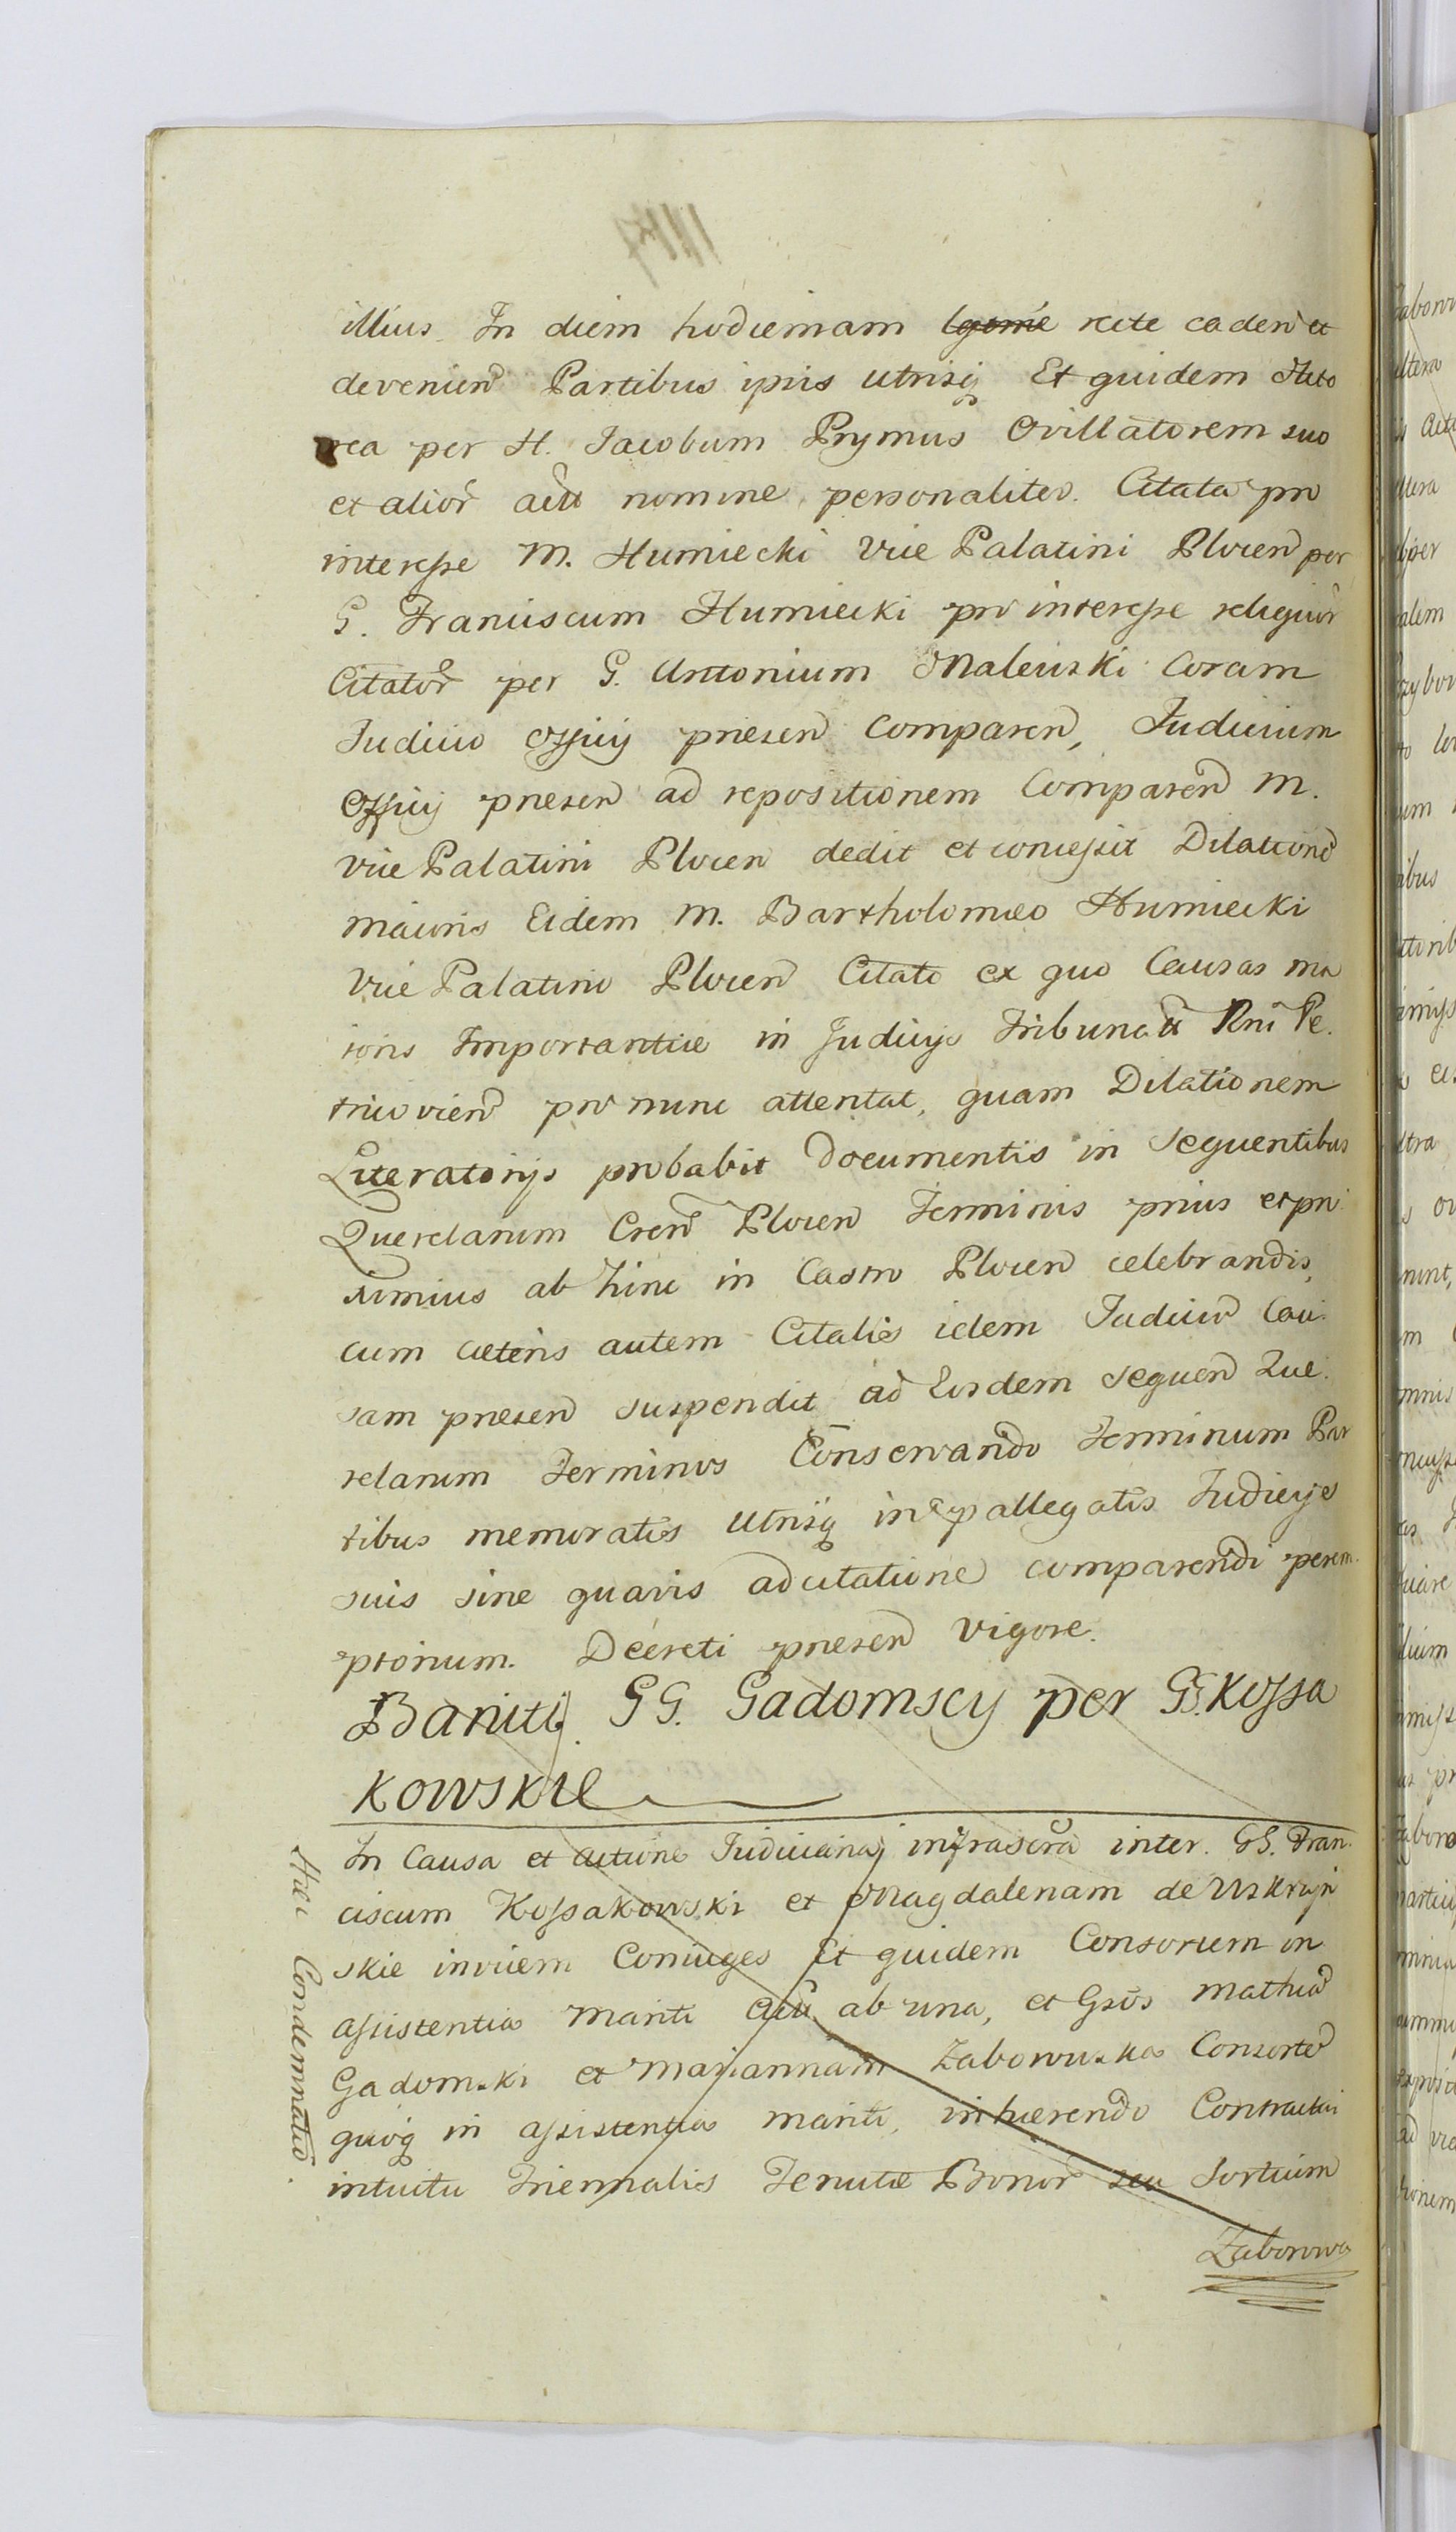 illius. In diem hodiernam rite caden et
devenien Partibus ipsis utrisq Et quidem Acto
rea per H. Jacobum Prymus Ovillatorem suo
et alior actu nomine personaliter. Citata pro
interesse M. Humiecki Vice Palatini Plocen per
G. Franciscum Humiecki pro interesse reliquor
Citator per G. Antonium Malewski Coram
Judicio Officij præsen Comparen, Judicium
Officij præsen ad repositionem Comparen M.
Vice Palatini Plocen dedit et concessit Dilation
maioris Eidem M. Bartholomæo Humiecki
Vice Palatino Plocen Citato ex quo Causas ma
ioris Importantiæ in Judicijs Tribunalu Rni Pe.
tricovien pro nunc attentat, quam Dilationem
Literatorijs probabit Documentis in Sequentibus
Querelarum Cren Plocen Terminis prius et pro
ximius ab hinc in Castro Plocen celebrandis,
cum cæteris autem Citatis idem Judicium Cau.
sam præsen suspendit ad Eosdem Sequen Que.
relarum Terminos Conservando Terminum Par
tibus memoratis Utrisq in præallegatis Judicijs
suis sine quavis adcitatione comparendi perem.
ptorium. Decreti præsen vigore.
Baniti. GG. Gadomscy per GG. Kossa
kowskie
In Causa et Actione Judiciaria infrascra inter. GG. Fran.
ciscum Kossakowski et Magdalenam de Uskryn
skie invicem Coniuges Et quidem Consortem in
assistentia Mariti Actu ab una, et Gsos Mathia
Gadomski et Mariannam Zaborowska Consorte
quoq in assistentia mariti, inhærendo Contractui
intuitu Triennalis Tenutæ Bonor seu Sortium
Zaborowo
Hæc Condemnatio.